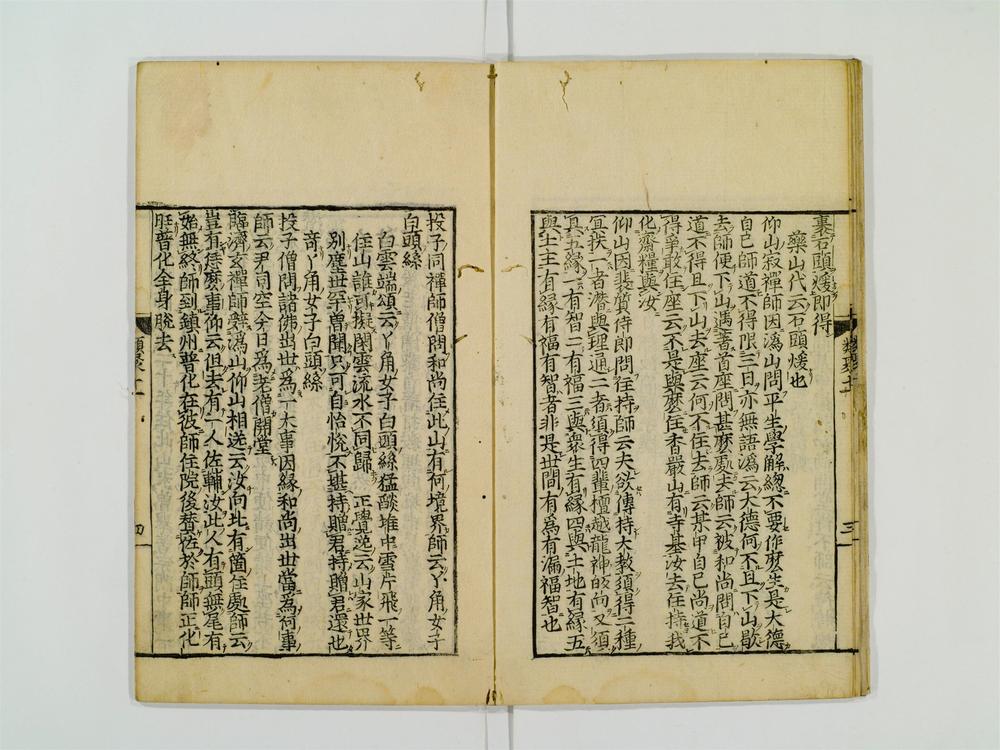 裹石頭煖即得
藥山代云石頭煖也
仰山寂禪師因潙山問平生學解總不要作麼生是大德
自己師道不得限三日亦無語潙云大德何不且下山歇
去師便下山遇著首座問甚麼處去師云被和尚問自己
道不得且下山去座云何不住去師云某甲自己尚道不
得爭敢住座云不是與麼住香嚴山有寺基汝去住持我
化齋糧與汝
仰山因裴質侍郎問住持師云夫欲傳持大教須得二種
冥扶一者潛與理通二者須得四輩檀越龍神皈向又須
具五緣一有智二有福三與衆生有緣四與土地有緣五
與土主有緣有福有智者非是世間有爲有漏福智也
類聚十一
三
投子同禪師僧問和尚住此山有何境界師云丫角女子
白頭絲
白雲端頌云丫角女子白頭絲猛𦦨堆中雪片飛一等
住山誰可擬閑雲流水不同歸 正覺逸云山家世界
別塵世罕曽聞只可自怡悅不堪持贈君持贈君還也
奇丫角女子白頭絲
投子僧問諸佛出世爲一大事因緣和尚出世當爲何事
師云尹司空今日爲老僧開堂
臨濟玄禪師辭潙山仰山相送云汝向北有箇住處師云
豈有恁麼事仰云但去有一人佐輔汝此人有頭無尾有
始無終師到鎮州普化在彼師住院後賛佐於師師正化
旺普化全身脫去
類聚十一
四